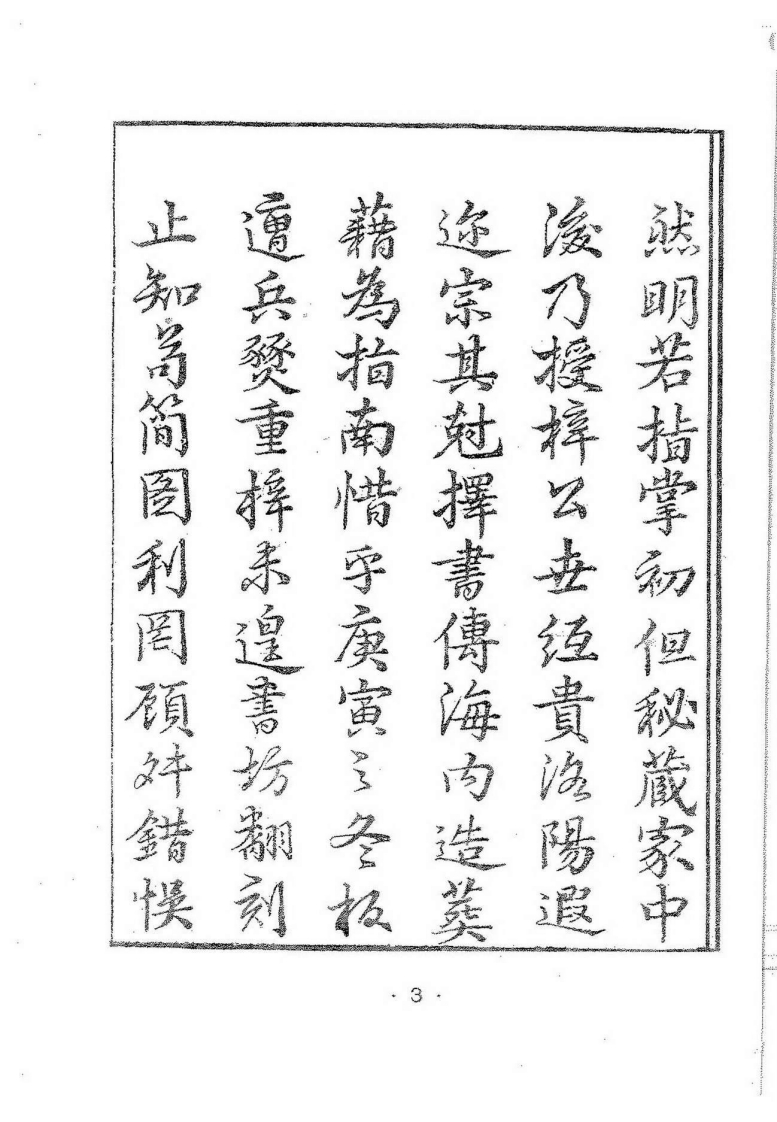 然明若指掌初但秘蔵家中
後乃授梓公世經貴洛陽遐
迩宗其尅擇書傳海内造葬
藉為指南惜乎庚寅之冬板
遭兵燹重梓未遑書坊翻刻
止知苟簡図利罔顧舛錯悞
· 3 ·